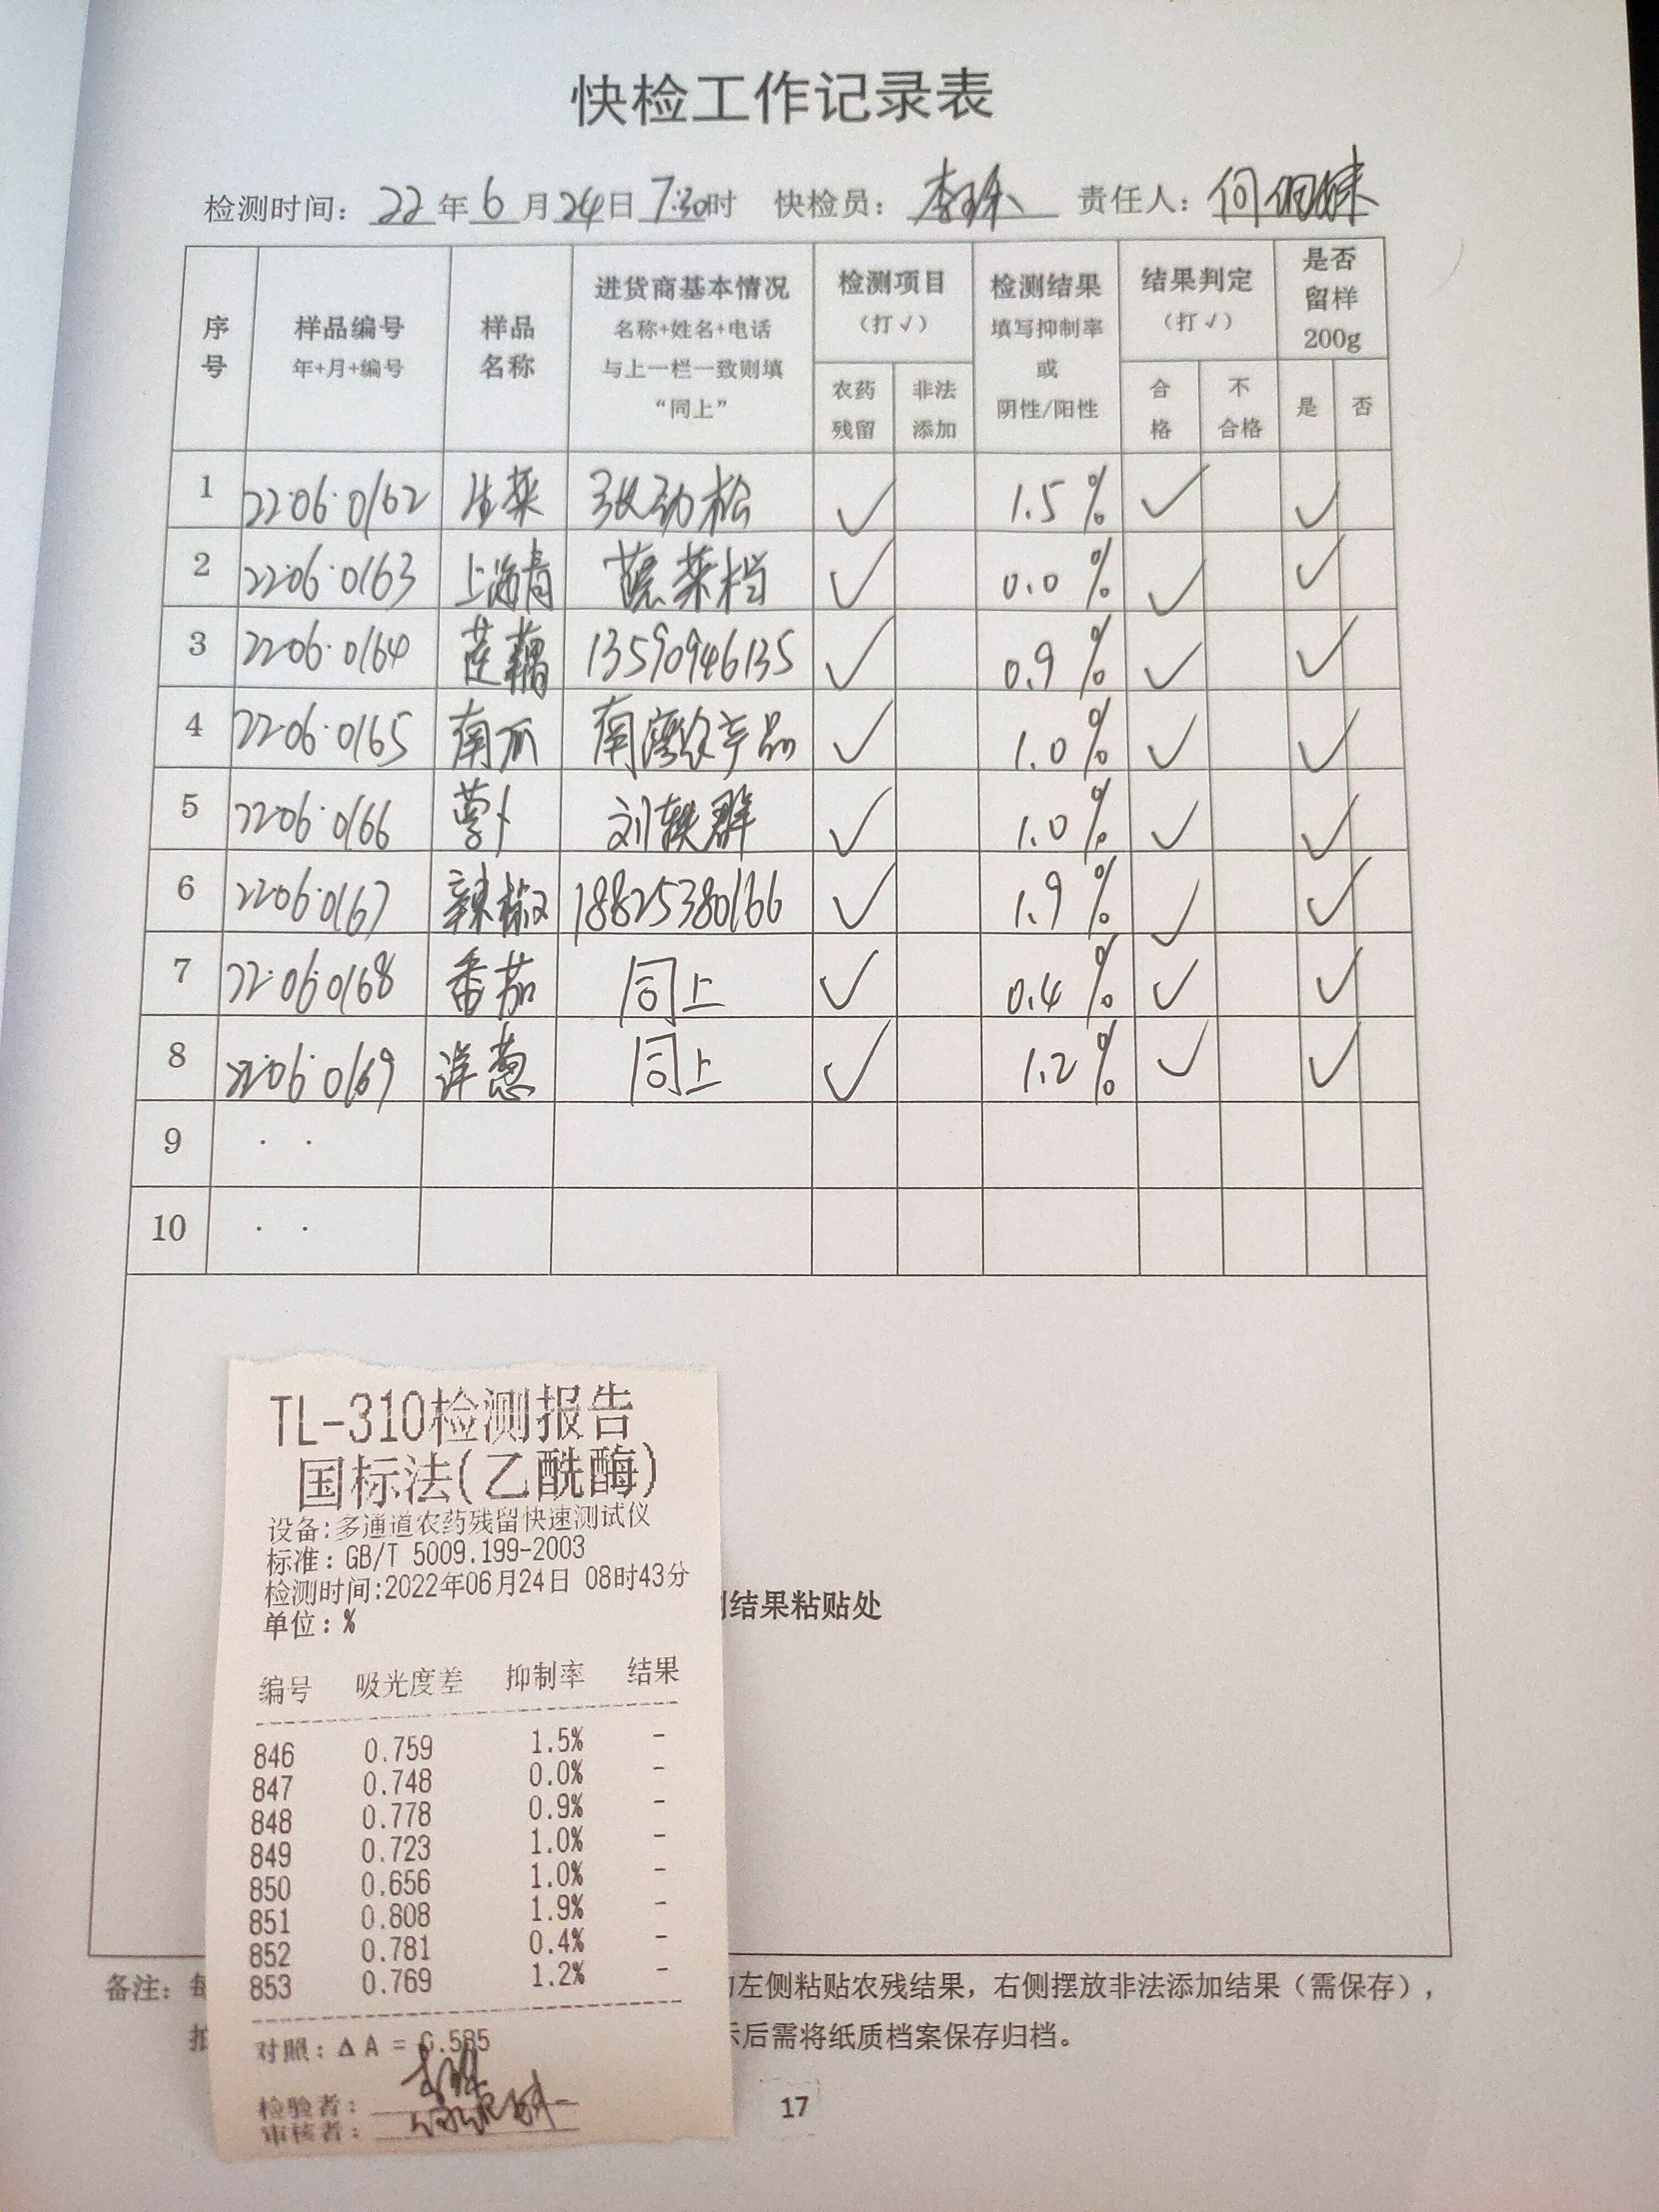 快检工作记录表
检测时间：22年6月24日7:30时 快检员：李 责任人：何
序号 样品编号 年+月+编号 样品名称 进货商基本情况 名称+姓名+电话 与上一栏一致则填“同上” 检测项目（打√） 农药残留 非法添加 检测结果 填写抑制率或阴性/阳性 结果判定（打√） 合格 不合格 是否留样200g 是 否
1 22·06·0162 生菜 张劲松 √ 1.5% √ √
2 22·06·0163 上海青 蔬菜档 √ 0.0% √ √
3 22·06·0164 莲藕 13590946135 √ 0.9% √ √
4 22·06·0165 南瓜 南湾农产品 √ 1.0% √ √
5 22·06·0166 萝卜 刘轶群 √ 1.0% √ √
6 22·06·0167 辣椒 18825380166 √ 1.9% √ √
7 22·06·0168 番茄 同上 √ 0.4% √ √
8 22·06·0169 洋葱 同上 √ 1.2% √ √
9 · ·
10 · ·
TL-310检测报告
国标法(乙酰酶)
设备:多通道农药残留快速测试仪
标准：GB/T 5009.199-2003
检测时间:2022年06月24日 08时43分
单位：%
结果粘贴处
编号 吸光度差 抑制率 结果
846 0.759 1.5% -
847 0.748 0.0% -
848 0.778 0.9% -
849 0.723 1.0% -
850 0.656 1.0% -
851 0.808 1.9% -
852 0.781 0.4% -
853 0.769 1.2% -
对照：ΔA = 0.585
检验者：
审核者：
备注：每 左侧粘贴农残结果，右侧摆放非法添加结果（需保存），
后需将纸质档案保存归档。
17